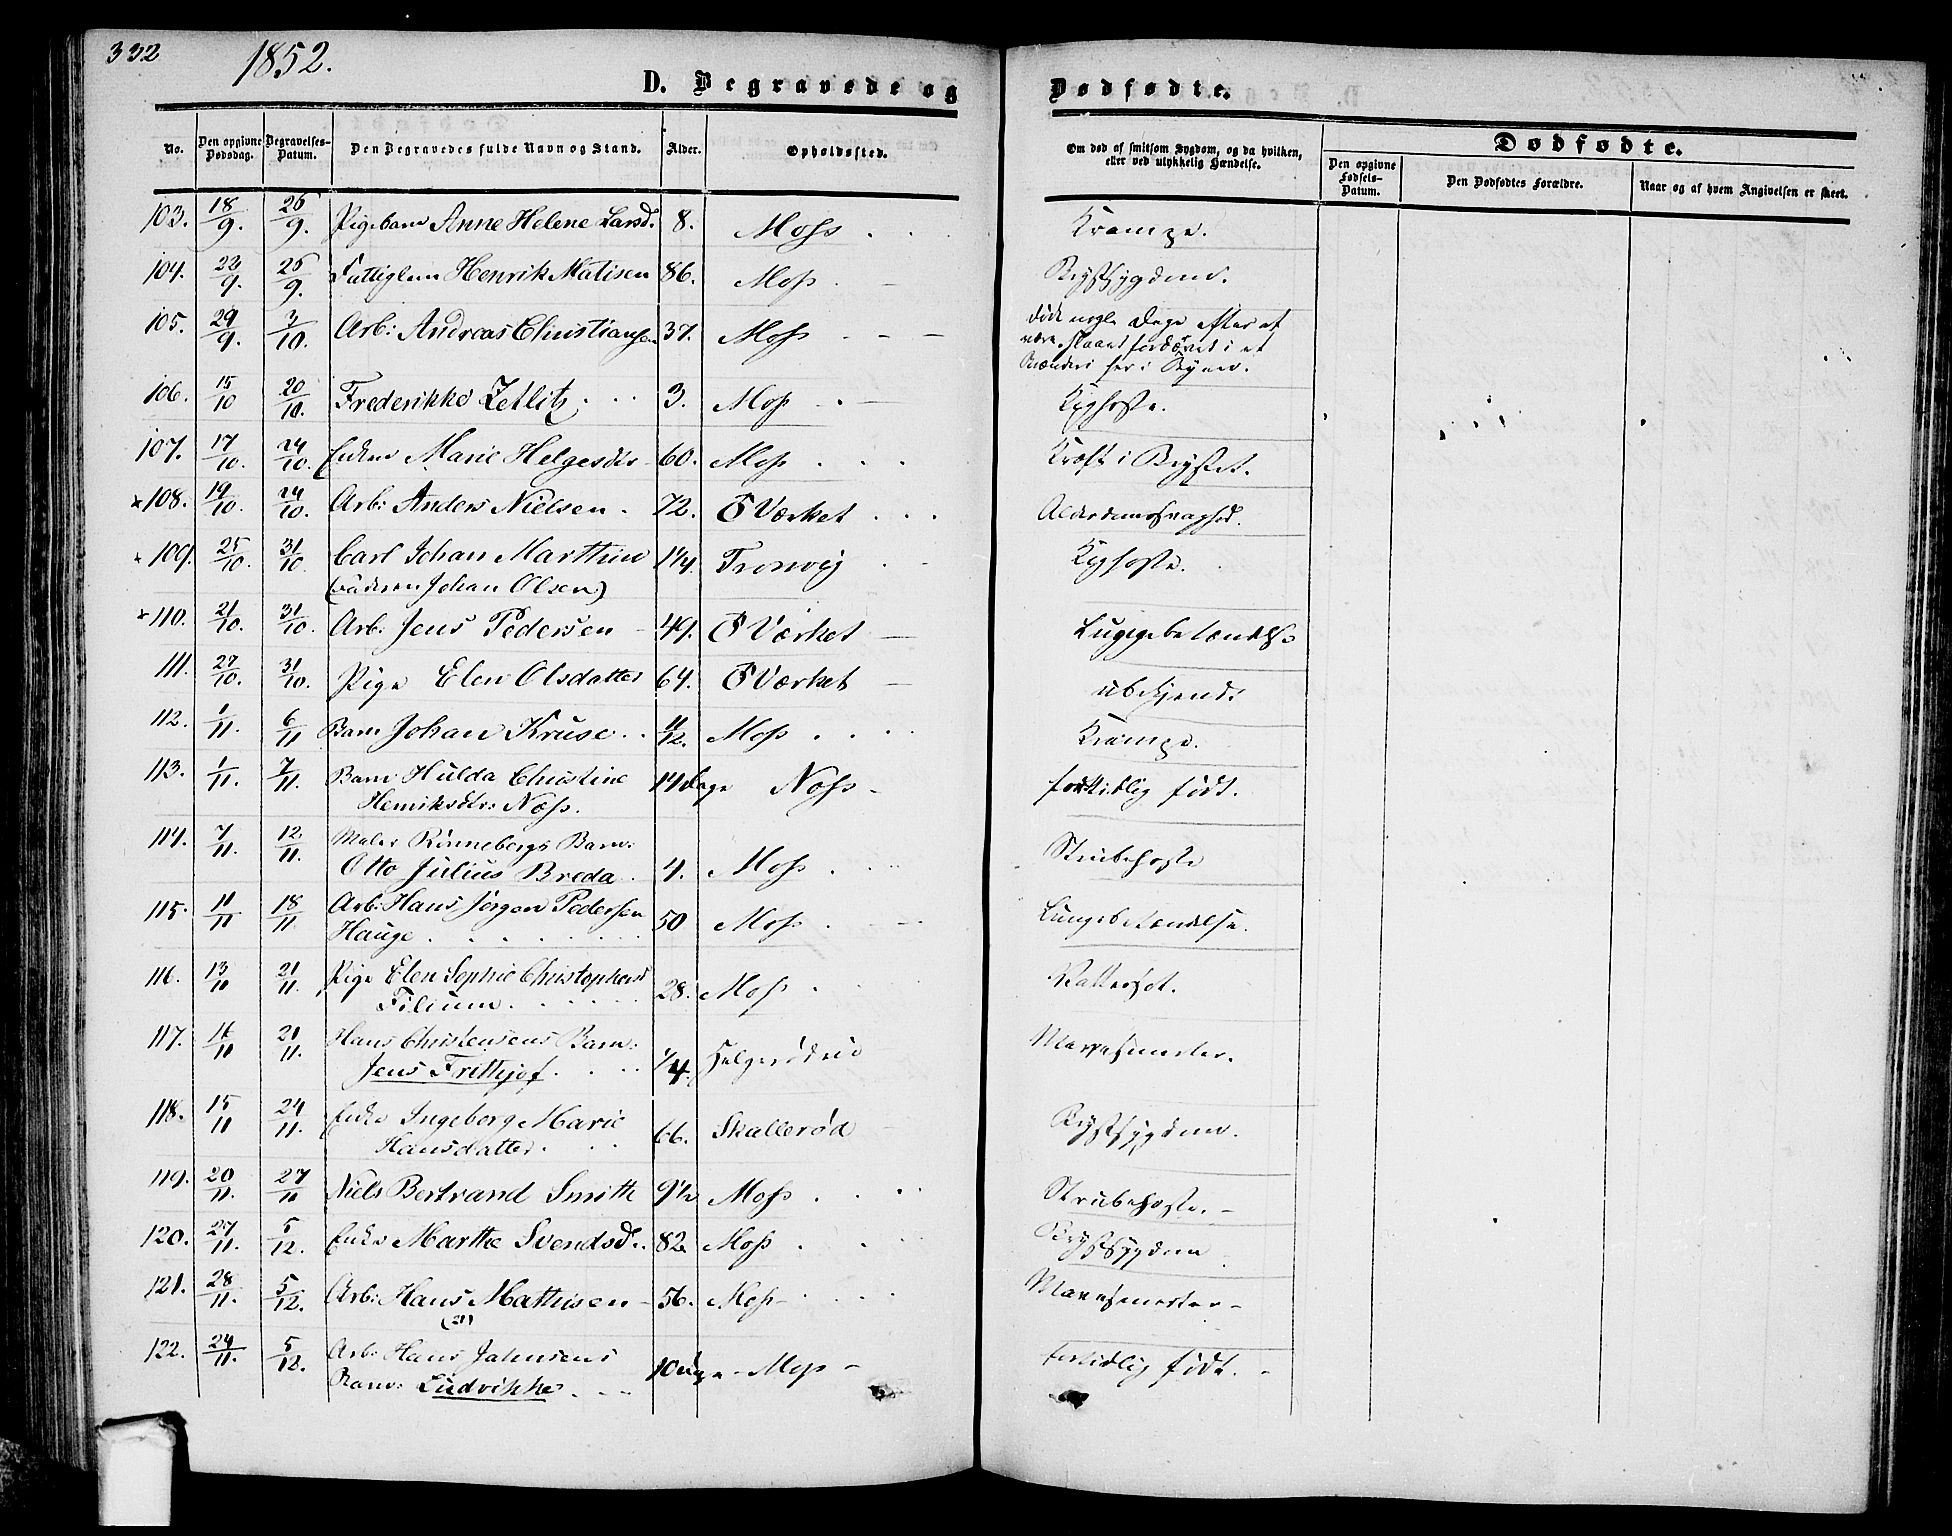 332 1852.
D. Begravede og Dødfødte.
No. Den opgivne Dødsdag. Begravelses-Datum. Den Begravedes fulde Navn og Stand. Alder. Opholdssted. Om død af smitsom Sygdom, og da hvilken, eller ved ulykkelig Hændelse. Dødfødte.
Den opgivne Fødsels-Datum. Den Dødfødtes Forældre. Naar og af hvem Angivelsen er skeet.
103. 18/9. 26/9. Pigebarn Anne Helene Larsd. 8. Moss Krampe.
104. 22/9. 26/9. Fattiglem Henrik Matisen 86. Moss Brystsygdom.
105. 29/9. 3/10. Arb: Andreas Christiansen 37. Moss døde nogle Dage efter at
være skaaret fordærvet i et
Brænderi her i Byen.
106. 15/10 20/10. Frederikke Zetlitz 3. Moss Kighoste.
107. 17/10. 24/10. Enken Marie Helgesdtr 60. Moss Kræft i Brystet.
x 108. 19/10. 24/10. Arb: Anders Nielsen 72. Værket Alderdomssvaghed.
x 109. 25/10. 31/10. Carl Johan Marthin 1 1/4. Tronvig Kighoste.
(Faderen Johan Olsen)
x 110. 21/10. 31/10. Arb. Jens Pedersen 49. Værket Lungebetændelse
111. 27/10. 31/10. Pige Elen Olsdatter 64. Værket ubekjendt
112. 1/11. 6/11 Barn Johan Kruse 11/12. Moss Krampe.
113. 1/11. 7/11. Barn Hulda Christine 14 dage Moss fortidlig født.
Henriksdtr: Næss.
114. 7/11. 12/11. Maler Rønnebergs Barn:
Otto Julius Breda 4. Moss Strubehoste
115. 11/11 18/11. Arb: Hans Jørgen Pedersen 50 Moss Lungebetændelse.
Hauge
116. 13/11 21/11. Pige Elen Sophie Christophersd 28. Moss Vattersot.
Filium
117. 11/11 21/11. Hans Christensens Barn: 1/4. Helgerødrud Mavesmerter.
Jens Frithjof
118. 15/11 24/11. Enke Ingeborg Marie 66. Skallerød Brystsygdom.
Hansdatter.
119. 20/11. 27/11 Niels Bertrand Smith 9 1/2 Moss Strubehoste.
120. 27/11. 5/12. Enken Marthe Svendsd. 82. Moss Brystsygdom
121. 28/11. 5/12. Arb: Hans Mathisen 56. Moss Mavesmerter
122. 24/11. 5/12. Arb: Hans Jahnsens 10 Moss fortidlig født.
Barn: Ludvikke